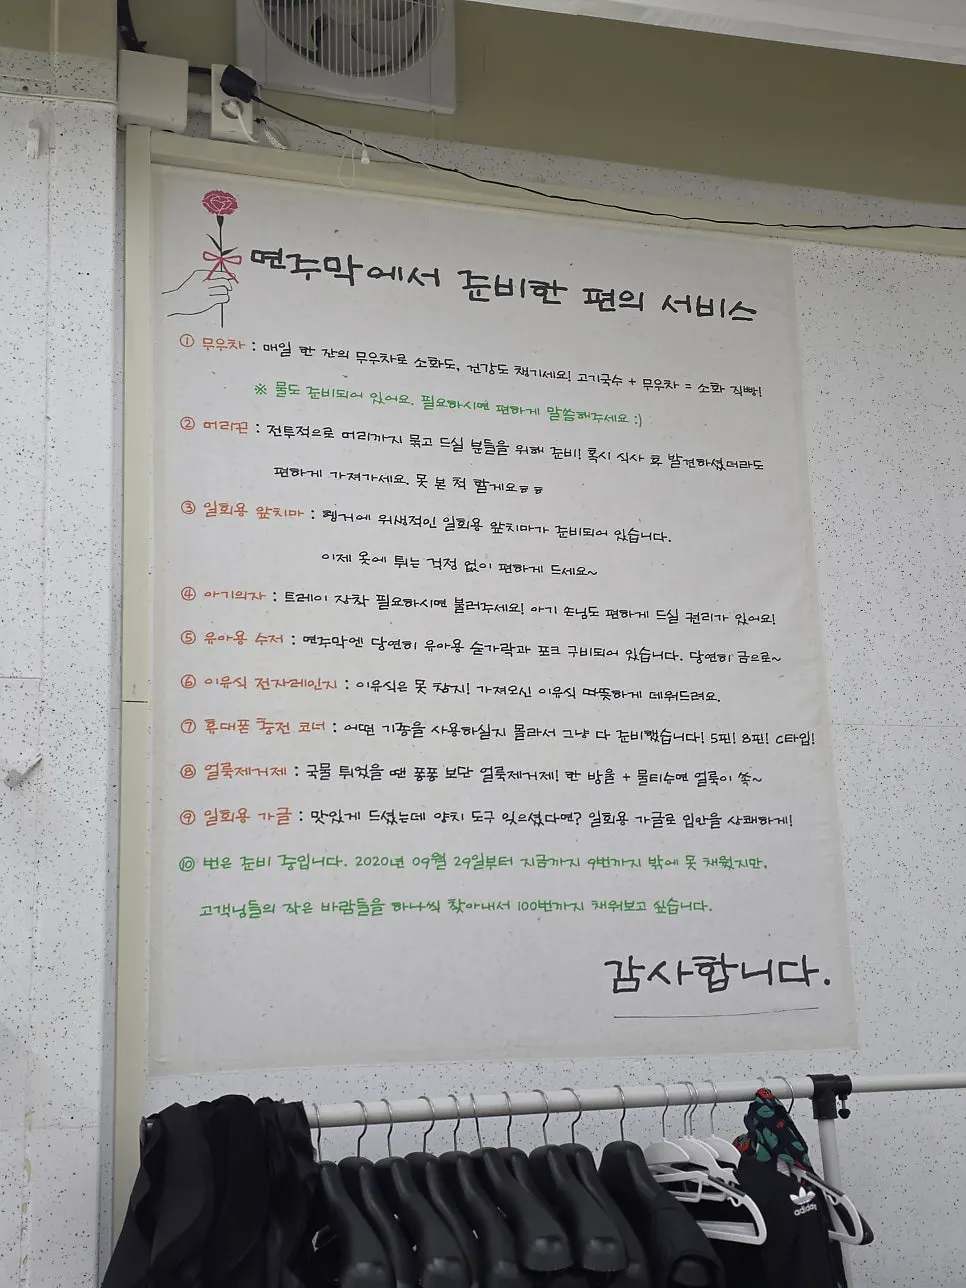 면주막에서 준비한 편의 서비스
① 무우차 : 매일 한 잔의 무우차로 소화도, 건강도 챙기세요! 고기국수 + 무우차 = 소화 직빵!
※ 물도 준비되어 있어요. 필요하시면 편하게 말씀해주세요 :)
② 머리끈 : 전투적으로 머리까지 묶고 드실 분들을 위해 준비! 혹시 식사 후 발견하셨더라도
편하게 가져가세요. 못 본 척 할게요ㅎㅎ
③ 일회용 앞치마 : 행거에 위생적인 일회용 앞치마가 준비되어 있습니다.
이제 옷에 튀는 걱정 없이 편하게 드세요~
④ 아기의자 : 트레이 장착 필요하시면 불러주세요! 아기 손님도 편하게 드실 권리가 있어요!
⑤ 유아용 수저 : 면주막엔 당연히 유아용 숟가락과 포크 구비되어 있습니다. 당연히 금으로~
⑥ 이유식 전자레인지 : 이유식은 못 참지! 가져오신 이유식 따뜻하게 데워드려요.
⑦ 휴대폰 충전 코너 : 어떤 기종을 사용하실지 몰라서 그냥 다 준비했습니다! 5핀! 8핀! C타입!
⑧ 얼룩제거제 : 국물 튀었을 땐 퐁퐁 보단 얼룩제거제! 한 방울 + 물티슈면 얼룩이 쏙~
⑨ 일회용 가글 : 맛있게 드셨는데 양치 도구 잊으셨다면? 일회용 가글로 입안을 상쾌하게!
⑩ 번은 준비 중입니다. 2020년 09월 29일부터 지금까지 9번까지 밖에 못 채웠지만,
고객님들의 작은 바람들을 하나씩 찾아내서 100번까지 채워보고 싶습니다.
감사합니다.
adidas